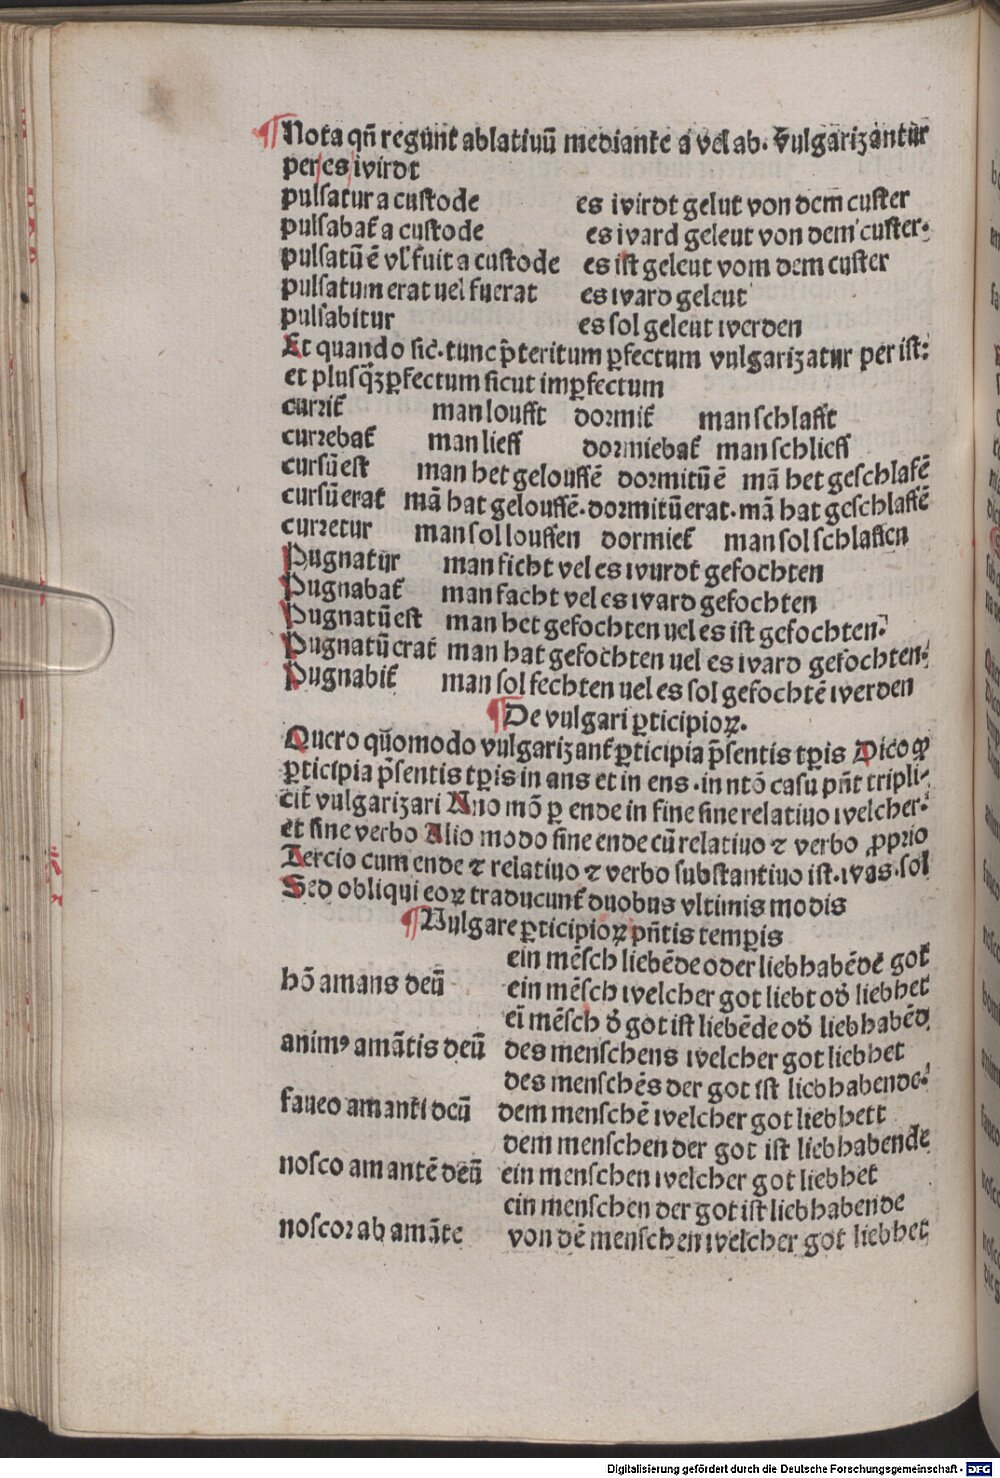 ¶Nota qn̄ regunt᷑ ablatiuū mediante a vel ab. vulgarizantur
per es wirdt
pulsatur a custode es wirdt gelut von dem custer
pulsabat᷑ a custode es ward geleut von dem custer.
pulsatū ē vl᷑ fuit a custode es ist geleut vom dem custer
pulsatum erat uel fuerat es ward geleut
pulsabitur es sol geleut werden
Et quando sic̄. tunc p̄teritum ꝑfectum vulgarizatur per ist:
et plusqꝫꝑfectum sicut imꝑfectum
currit᷑ man loufft dormit᷑ man schlafft
currebat᷑ man lieff dormiebat᷑ man schlieff
cursū est man het gelouffē dormitū ē mā het geschlafē
cursū erat mā hat gelouffē. dormitū erat. mā hat geschlaffē
curretur man sol louffen dormiet᷑ man sol schlaffen
Pugnatur man ficht vel es wurdt gefochten
Pugnabat᷑ man facht vel es ward gefochten
Pugnatū est man het gefochten uel es ist gefochten.
Pugnatū erat man hat gefochten uel es ward gefochten.
Pugnabit᷑ man sol fechten uel es sol gefochtē werden
¶De vulgari ꝑticipioꝝ.
Quero quō modo vulgarizant᷑ ꝑticipia p̄sentis tꝑis Dico ꝙ
ꝑticipia p̄sentis tꝑis in ans et in ens. in ntō casu pn̄t tripli-
cit᷑ vulgarizari Uno mō ꝑ ende in fine sine relatiuo welcher.
et sine verbo Alio modo sine ende cū relatiuo ⁊ verbo ꝓprio
Tercio cum ende ⁊ relatiuo ⁊ verbo substantiuo ist. was. sol
Sed obliqui eoꝝ traducunt᷑ duobus vltimis modis
¶Vulgare ꝑticipioꝝ pn̄tis temꝑis
ein mēsch liebēde oder liebhabēdē got
hō amans deū ein mēsch welcher got liebt od᷑ liebhet
eī mēsch d᷑ got ist liebēde od᷑ liebhabēd
animꝰ amātis deū des menschens welcher got liebhet
des menschēs der got ist liebhabende.
faueo amanti deū dem menschē welcher got liebhett
dem menschen der got ist liebhabende
nosco amantē deū ein menschen welcher got liebhet
ein menschen der got ist liebhabende
noscor ab amāte von dē menschen welcher got liebhet
Digitalisierung gefördert durch die Deutsche Forschungsgemeinschaft - DFG